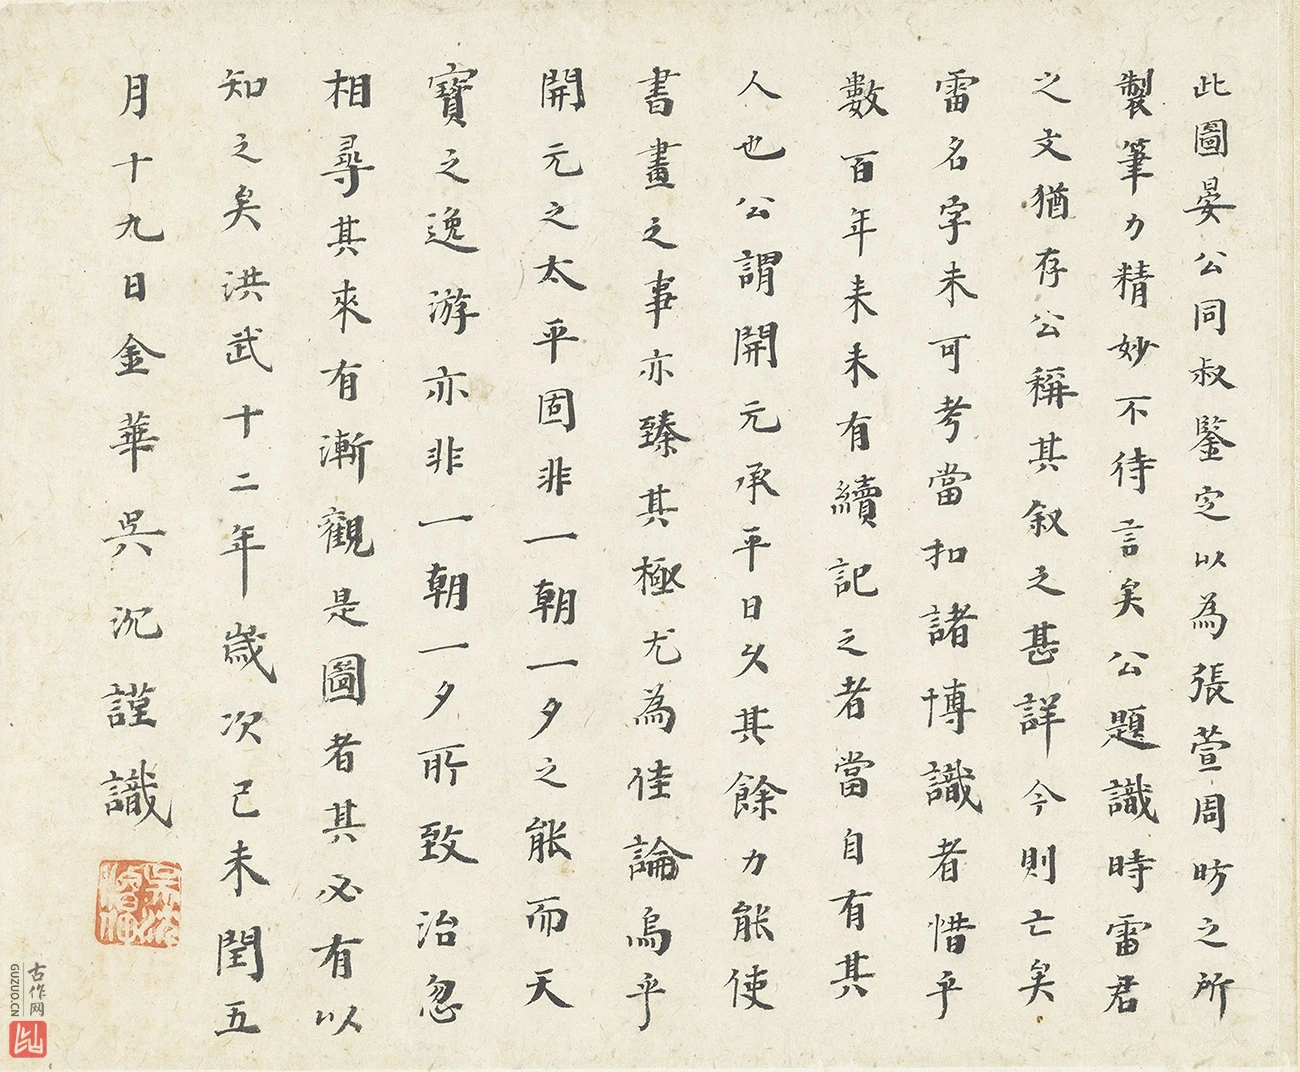 此圖晏公同叔鑒定以為張萱周昉之所
製筆力精妙不待言矣公題識時雷君
之文猶存公稱其叙之甚詳今則亡矣
雷名字未可考當扣諸博識者惜乎
數百年来未有續記之者當自有其
人也公謂開元承平日久其餘力能使
書畫之事亦臻其極尤為佳論烏乎
開元之太平固非一朝一夕之能而天
寶之逸游亦非一朝一夕所致治忽
相尋其來有漸觀是圖者其必有以
知之矣洪武十二年歲次己未閏五
月十九日金華吳沉謹識
古作网
GUZUO.CN